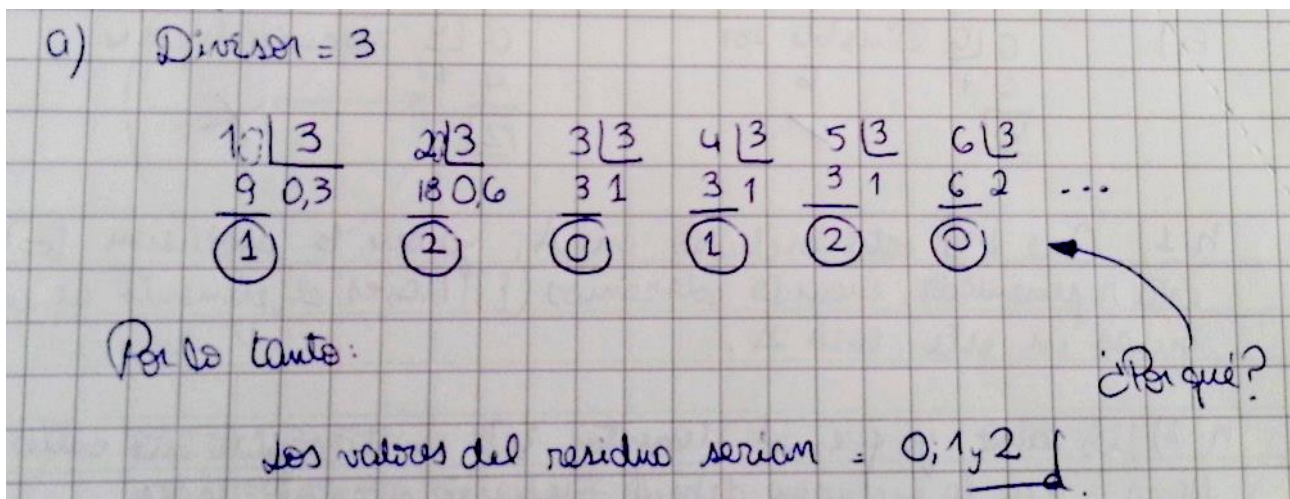 a) Divisor = 3
10 3 20 3 3 3 4 3 5 3 6 3
9 0,3 18 0,6 3 1 3 1 3 1 6 2 ...
1 2 0 1 2 0
Por lo tanto:
¿Por qué?
Los valores del residuo serían = 0, 1 y 2